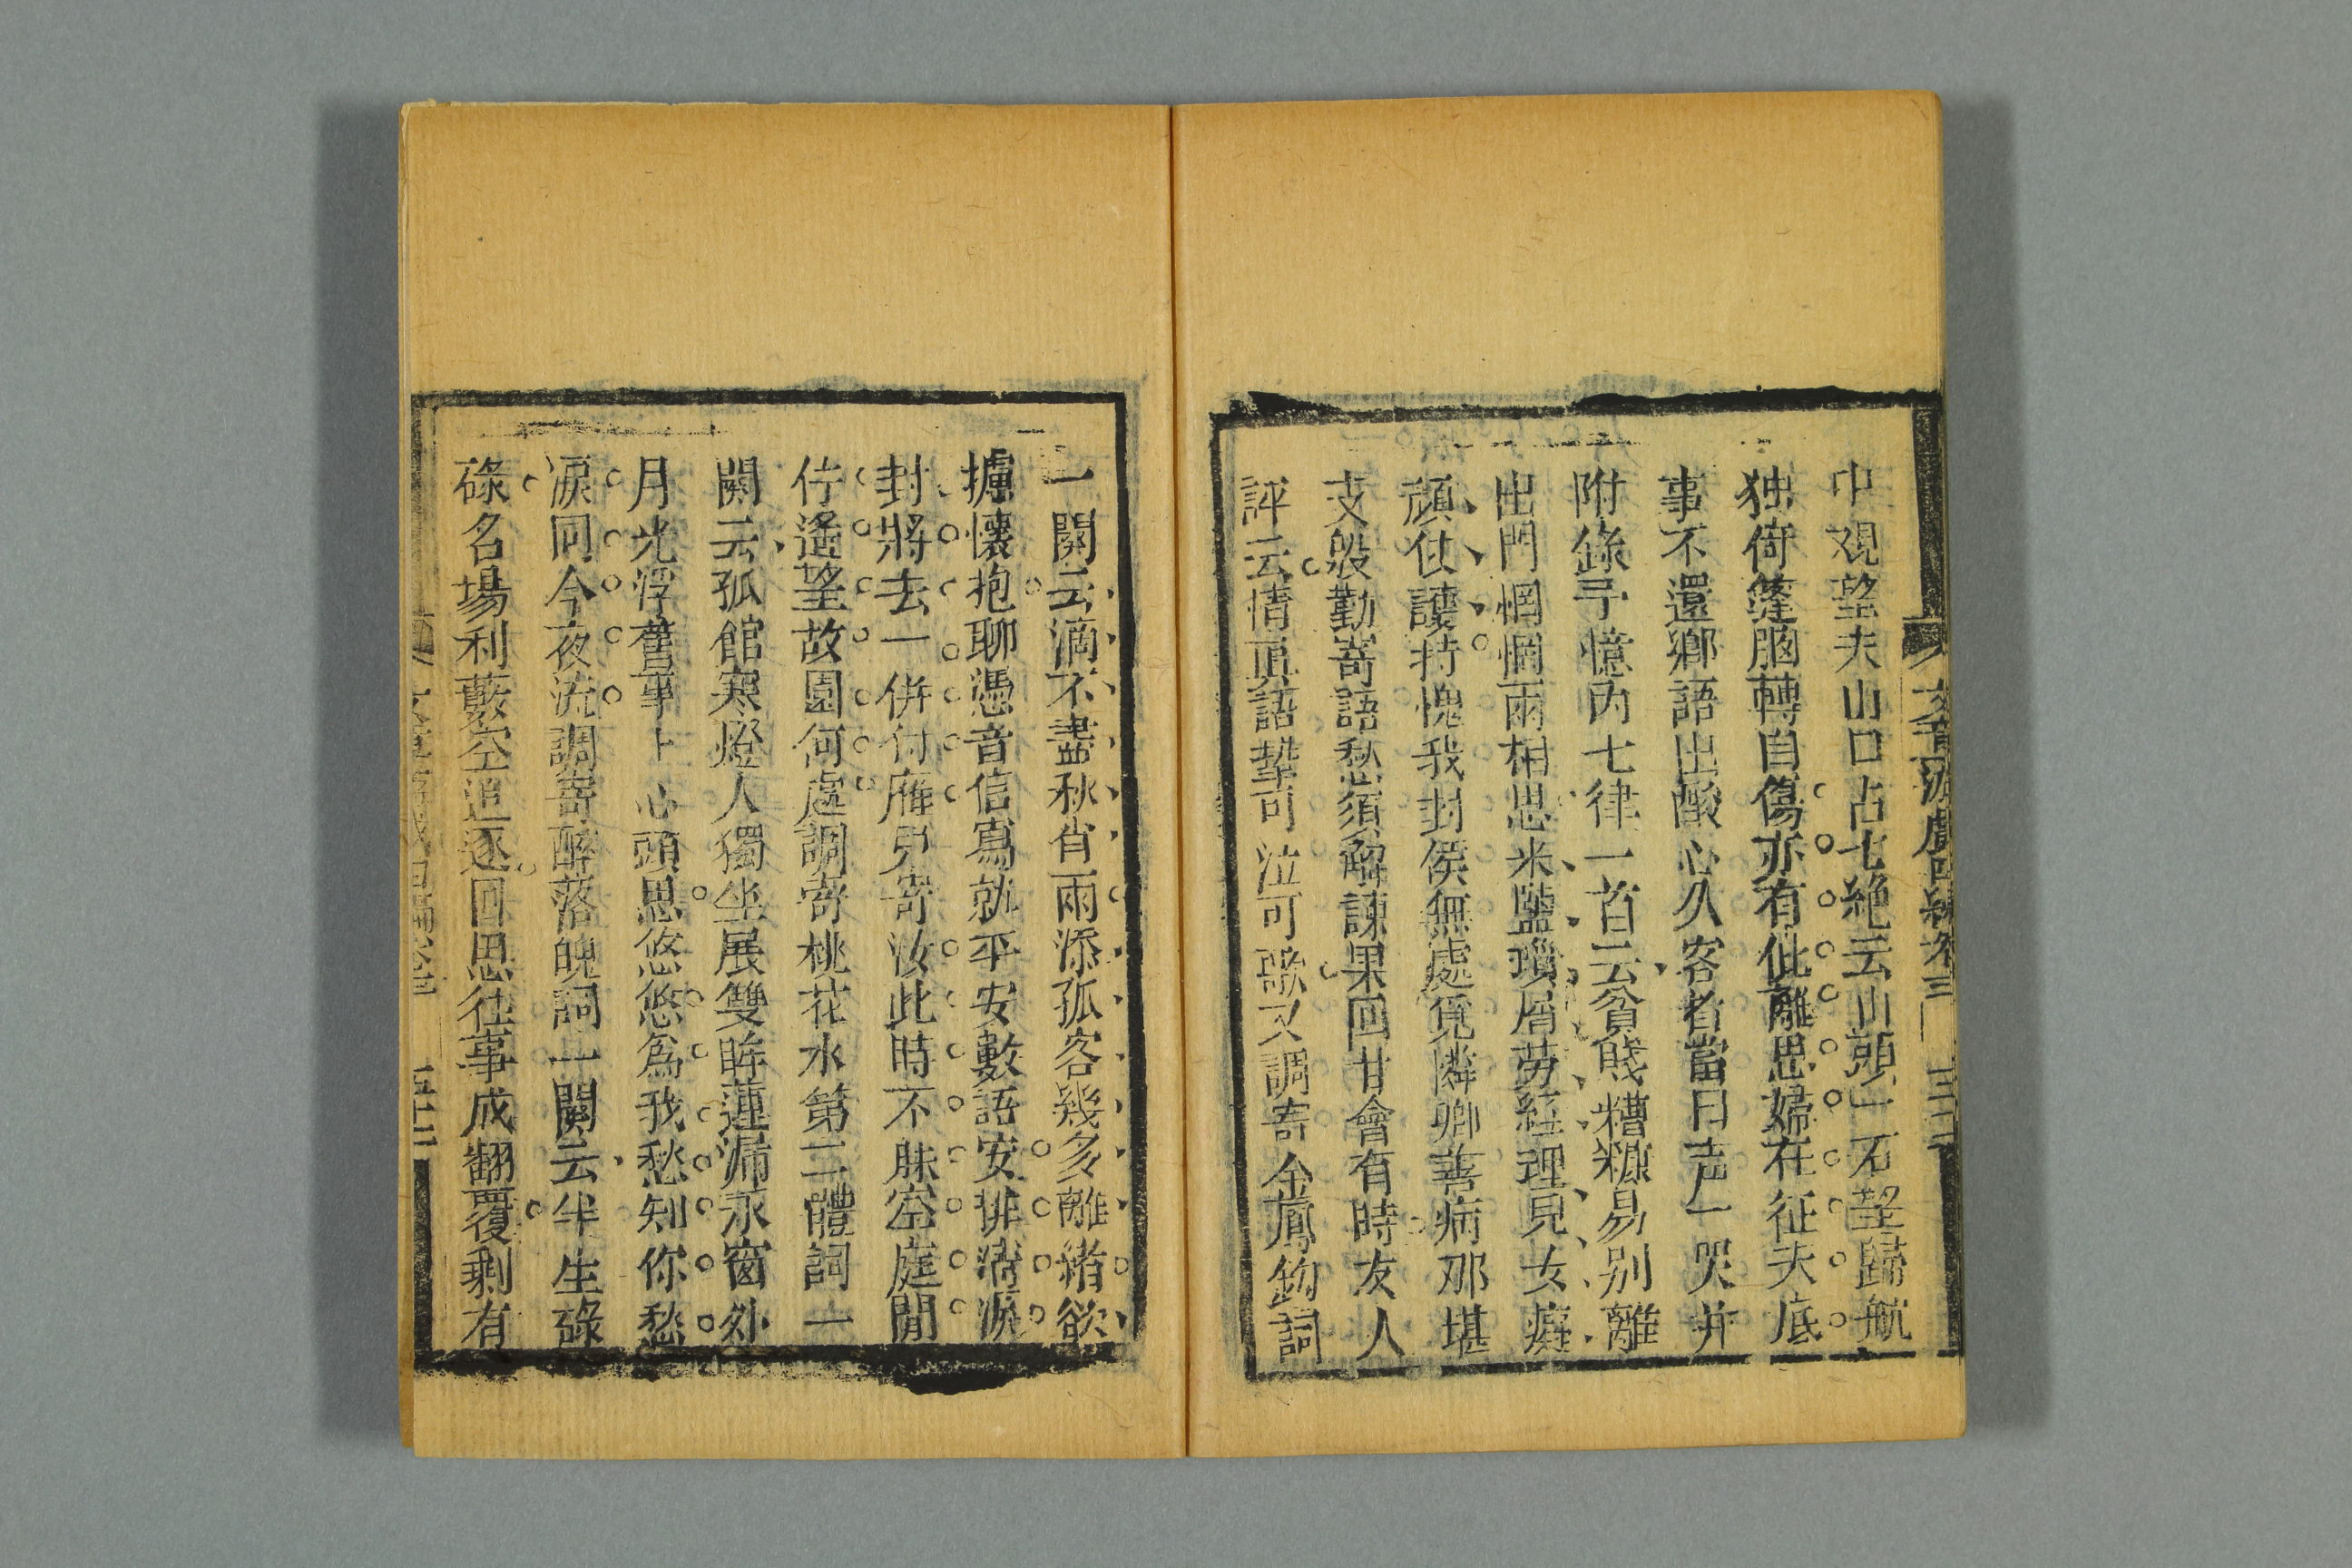 中覌望夫山口占七絶云山頭一石望歸航
独倚篷胸轉自傷亦有此離思婦在征夫底
事不還鄉語出酸心久客者當日声一哭并
附錄弓憶内七律一首云貧賤糟糠易別離
出門惘惘兩相思米鹽瑣屑劳経理兒女癡
頑仗護持愧我封侯無處覓憐卿善病那堪
支殷勤寄語愁須解諫果回甘會有時友人
評云情眞語摯可泣可歌又調寄金鳳鈎詞
一闋云滴不盡秋宵雨添孤客幾多離緒欲
攄懷抱聊憑音信寫就平安數語安排淸淚
封將去一併付雁兒寄汝此時不睬空庭閒
佇遙望故園何處調寄桃花水第二體詞一
闋云孤館寒燈人獨坐展雙眸蓮漏永窗外
月光浮舊事上心頭思悠悠爲我愁知你愁
淚同今夜流調寄醉落魄詞一闋云半生碌
碌名場利藪空追逐回思往事成翻覆剩有